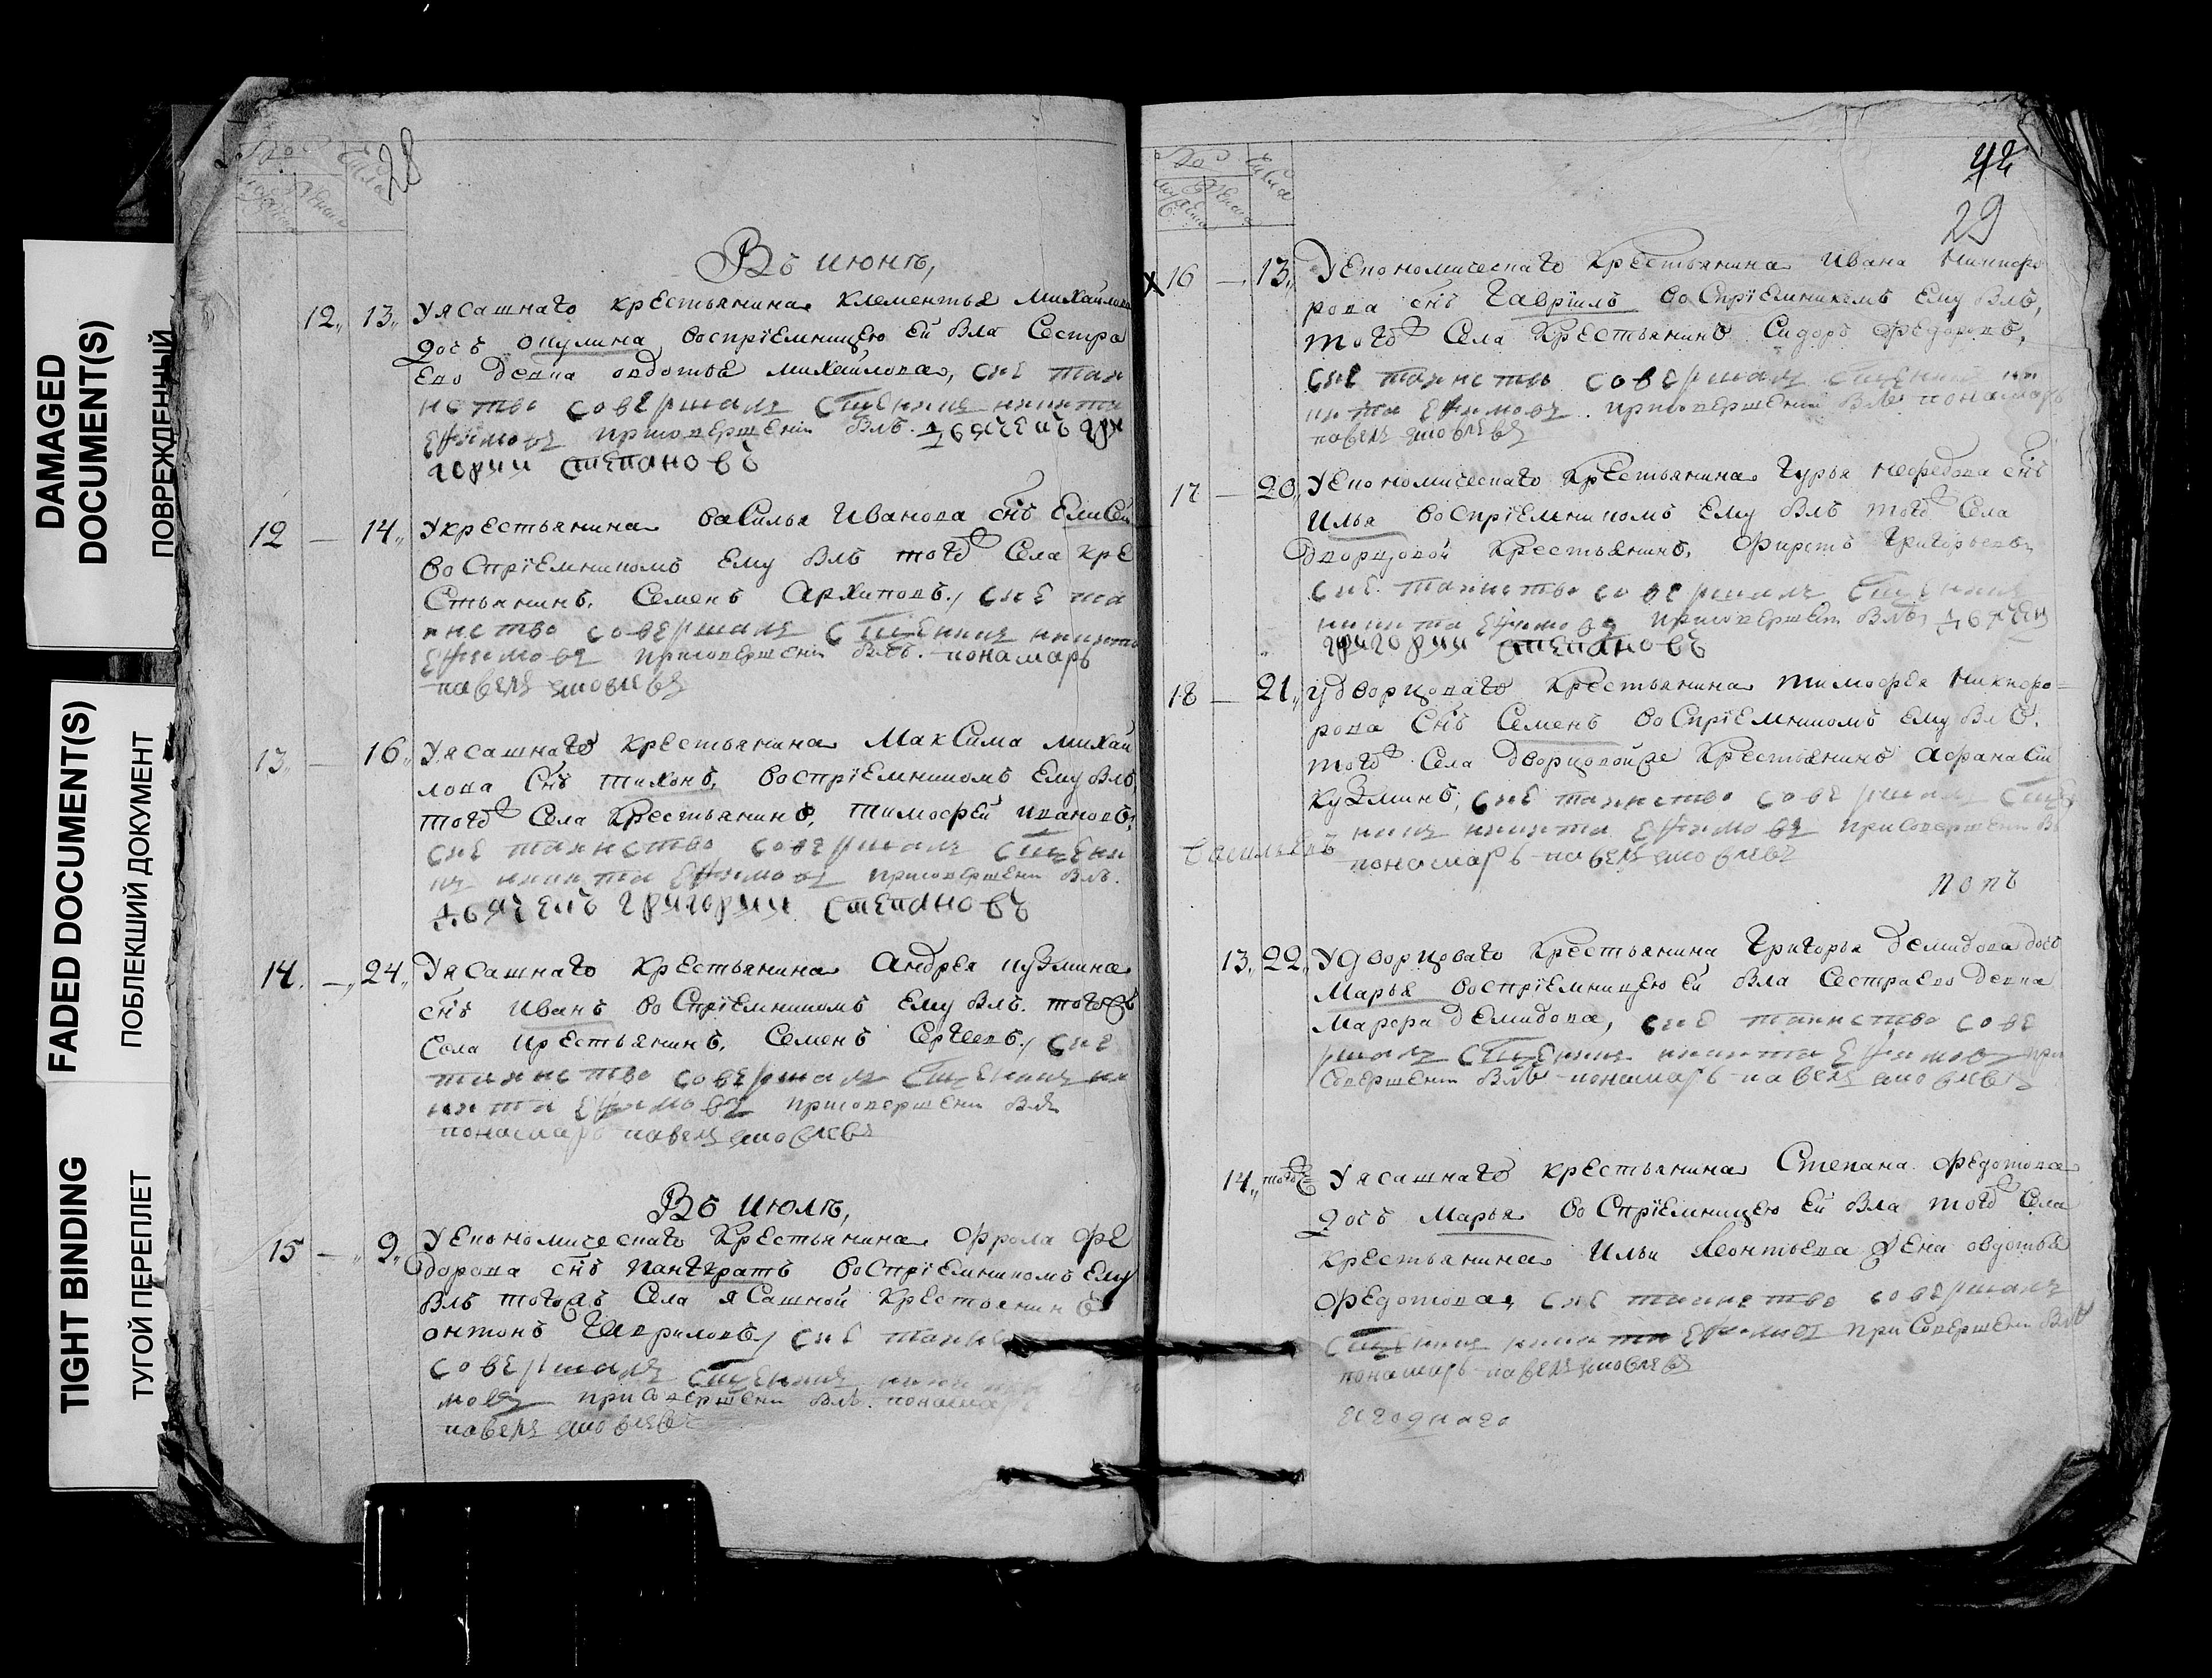 DAMAGED
DOCUMENT(S)
ПОВРЕЖДЕННЫЙ
FADED DOCUMENT(S)
ПОБЛЕКШИЙ ДОКУМЕНТ
TIGHT BINDING
ТУГОЙ ПЕРЕПЛЕТ
28
Въ июнѣ,
12,, 13,, У ясашнаго крестьянина Клементья Михайлова
дочь Окулина воспрїемницею ей бла сестра
ево девка овдотья Михайлова, сие таи
нство совершалъ сщенникъ никита
Ефимовъ присовершени блъ. дьячекъ гри
горий степановъ
12 — 14,, У крестьянина Василья Иванова снъ Елисей
воспрїемникомъ ему блъ тогож села кре
стьянинъ. Семенъ Архиповъ, сие та
инство совершалъ сщенникъ никита
Ефимовъ присовершени блъ. понамарь
павелъ яковлевъ
13,, — 16,, У ясашнаго крестьянина Максима михай
лова снъ тихонъ, воспрїемникомъ ему блъ
тогож села крестьянинъ, тимофей ивановъ,
сие таинство совершалъ сщенни
къ никита Ефимовъ присовершени блъ.
дьячекъ григорий степановъ
14. — 24,, У ясашнаго крестьянина Андрея кузмина
снъ Иванъ воспрїемникомъ ему блъ. тогожъ
села крестьянинъ. Семенъ Сергеевъ, сие
таинство совершалъ сщенникъ ни
кита Ефимовъ присовершени блъ
понамарь павелъ яковлевъ
Въ июлѣ,
15 — 9,, У економическаго крестьянина Фрола Фе
дорова снъ панкратъ воспрїемникомъ ему
блъ тогожъ села ясашной крестьянинъ
онтонъ Гавриловъ, сие таин
совершалъ сщенникъ
мовъ присовершени блъ. понама
павелъ яковлевъ
42
29
16 — 13,, У економическаго крестьянина Ивана Никифо
рова снъ Гаврїилъ воспрїемникомъ ему блъ,
тогож села крестьянинъ Сидоръ Федоровъ,
сие таинство совершалъ сщенникъ ни
кита Ефимовъ присовершени блъ понамарь
павелъ яковлевъ
17 — 20,, У економическаго крестьянина Гурья Нефедова снъ
Илья воспрїемникомъ ему блъ тогож села
дворцовой крестьянинъ, Фирстъ Григорьевъ
сие таинство совершалъ сщенникъ
никита Ефимовъ присовершени блъ, дьячекъ
григорий степановъ
18 — 21,, У дворцоваго крестьянина тимофея Никифо-
рова снъ Семенъ воспрїемникомъ ему блъ.
тогож села дворцовойже крестьянинъ Афанасей
Кузминъ, сие таинство совершалъ сще
никъ никита Ефимовъ присовершени б
Васильевъ
понамарь павелъ яковлевъ
попъ
13,, 22,, У дворцоваго крестьянина Григорья Демидова дочь
Марья воспрїемницею ей бла сестра ево девка
Марфа Демидова, сие таинство сове
ршалъ сщенникъ никита Ефимовъ при
совершени блъ понамарь павелъ яковлевъ
14,, тогож У ясашнаго крестьянина Степана Федотова
дочь Марья воспрїемницею ей бла тогож села
крестьянина Ильи Леонтьева жена овдотья
Федотова, сие таинство совершалъ
сщенникъ никита Ефимовъ присовершени блъ
понамарь павелъ яковлевъ